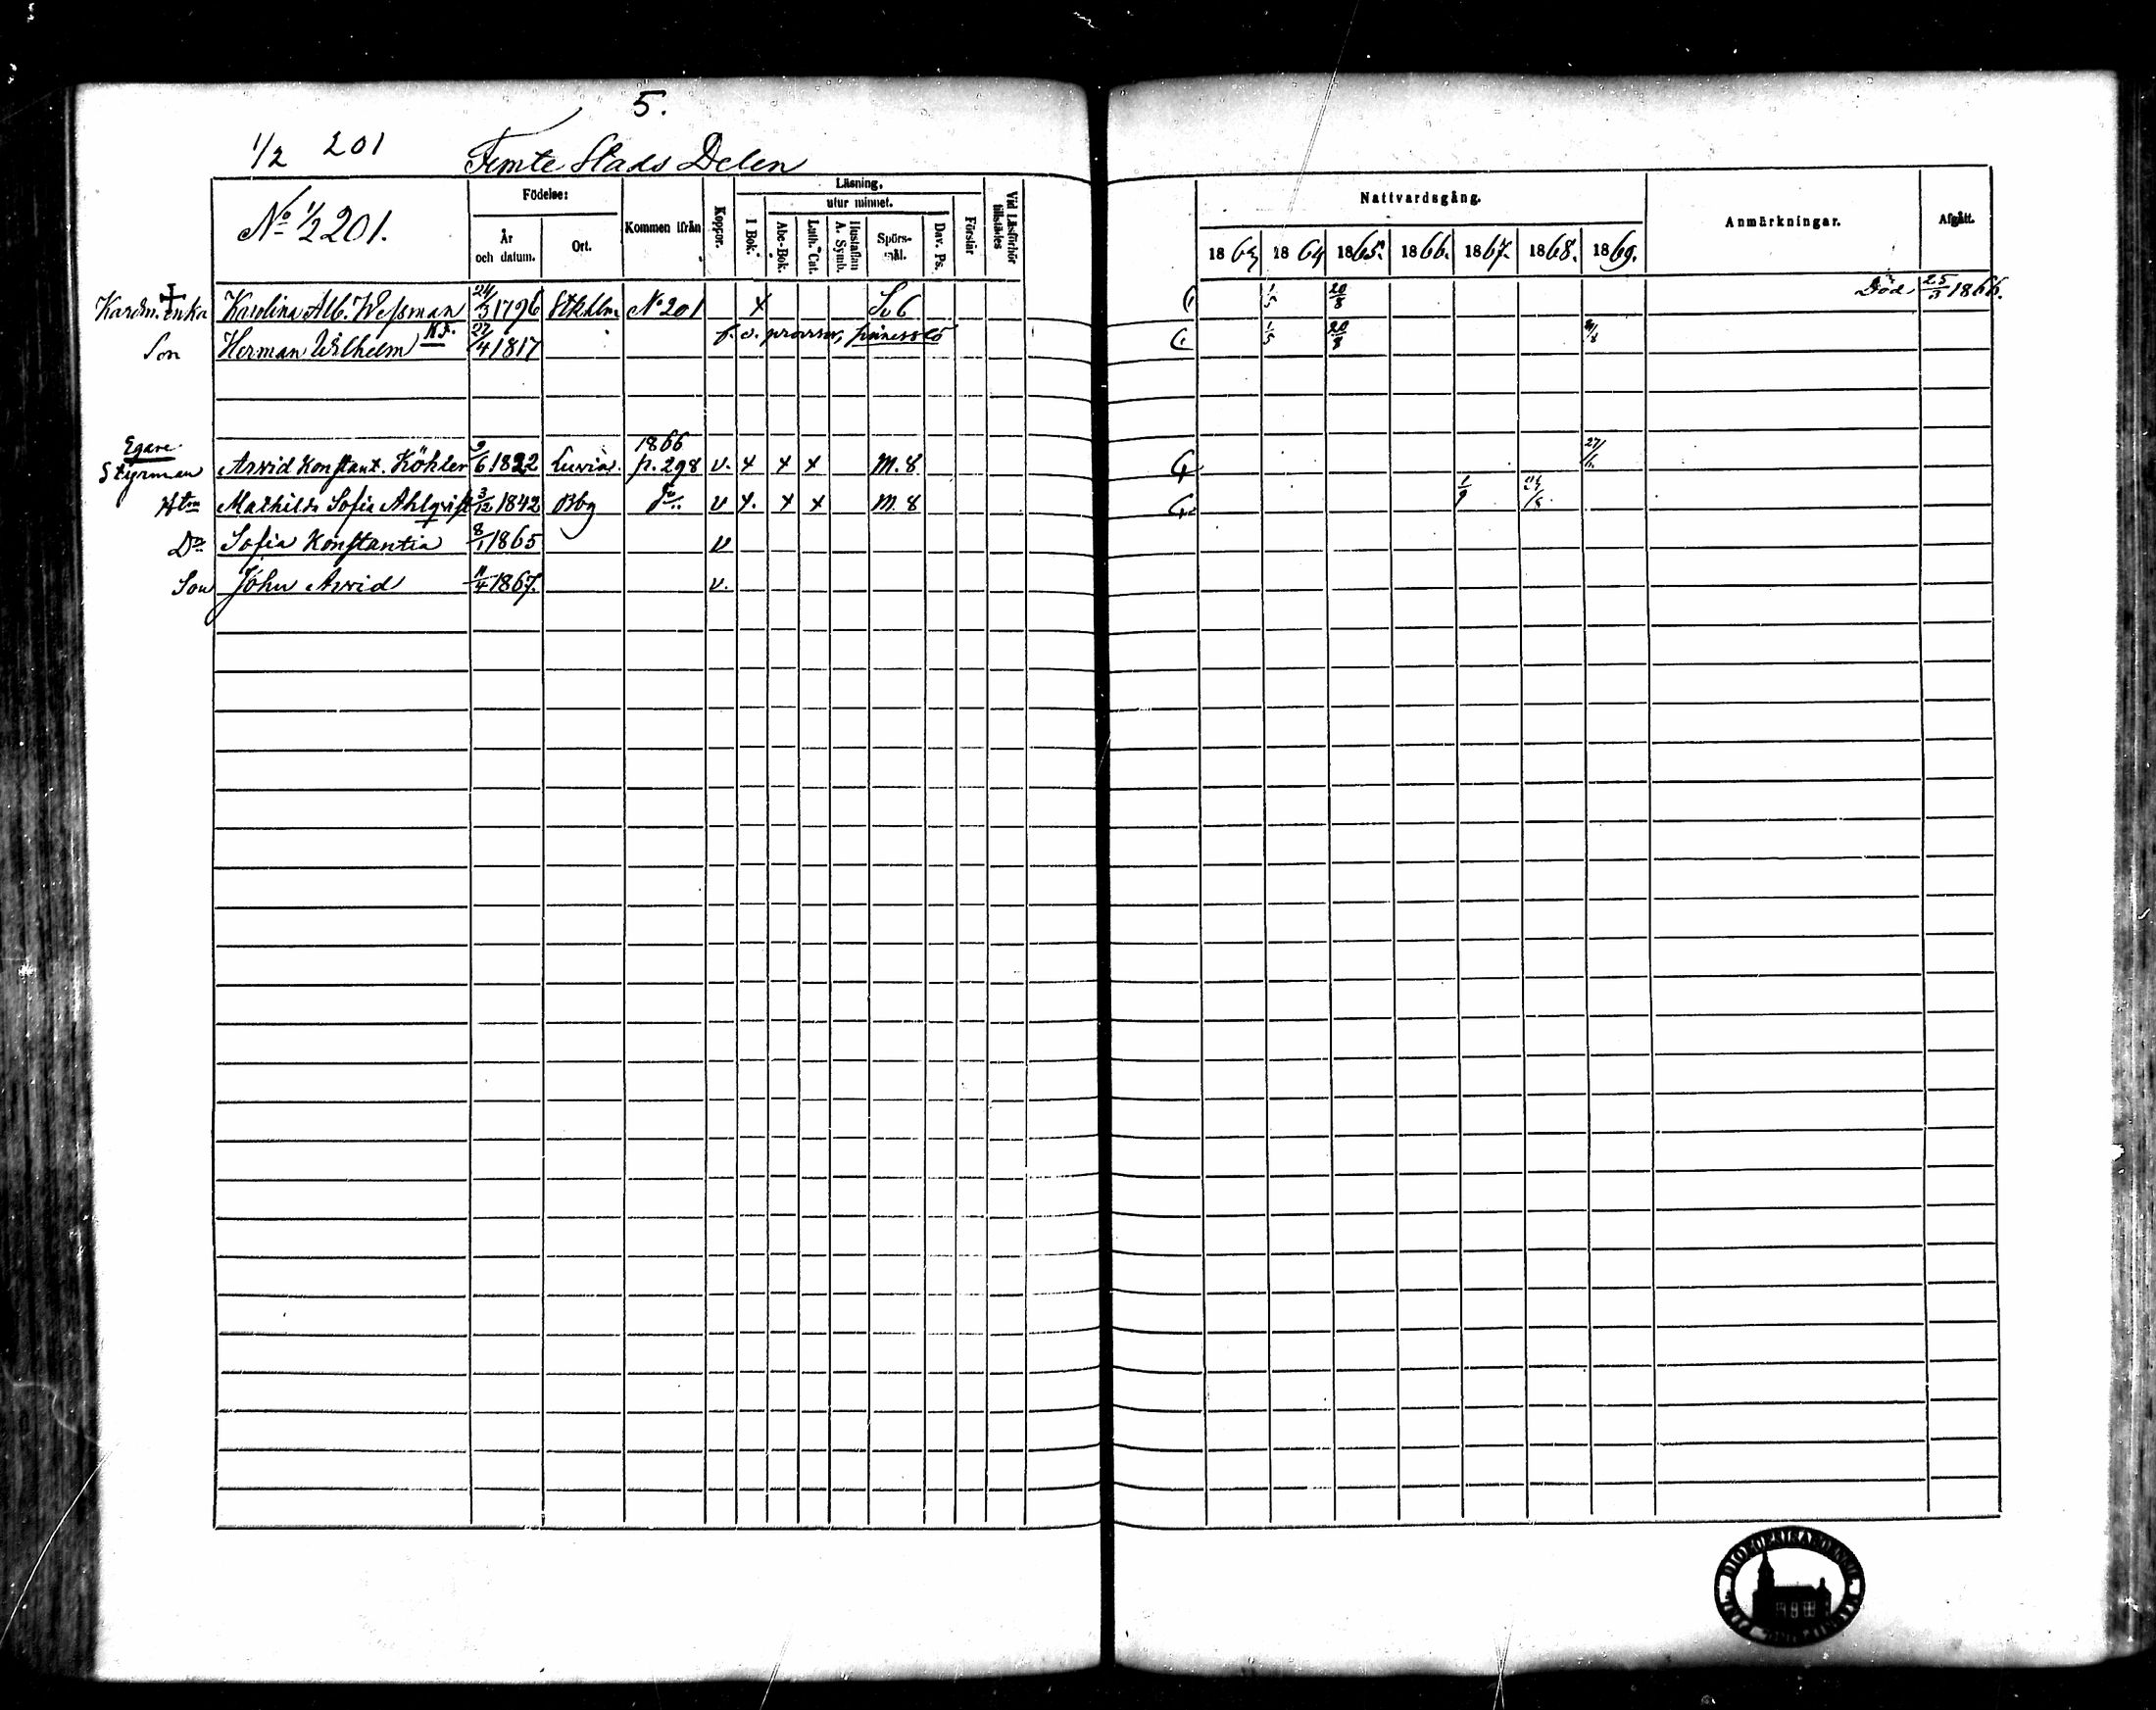 5.
1/2 201 Femte Stads Delen
No 1/2 201.
Födelse:
År och datum.
Ort.
Kommen ifrån
Koppor.
Läsning,
utur minnet.
I Bok.
Abc-Bok.
Luth. Cat.
Hustaflan A. Symb.
Spörsmål.
Dav. Ps.
Förstår
Vid Läsförhör tillstädes
Nattvardsgång.
1863 1864 1865. 1866. 1867. 1868. 1869.
Anmärkningar.
Afgått.
Karolina Alb. Weſsman 24/3 1796 Stkhlm No 201 x S. 6 1/5 20/8 Död 25/3 1866.
Son Herman Wilhelm 27/4 1817 1/5 20/8
Egare 1866
Styrman Arvid Konstant. Köhler 9/6 1822 Luvia. p. 298 v. x x x M. 8
Mathilda Sofia Ahlqvist 3/12 1842 Bbg do v x. x x M. 8 1/9
Dr Sofia Konstantia 8/1 1865 v
Son John Arvid 11/4 1867. v.